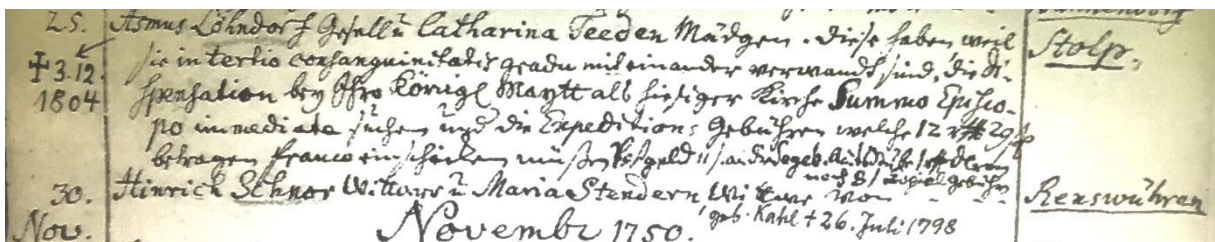 25. Asmus Löhndorf Gesell u Catharina Teeden Mädgen. Diese haben weil Stolp.
+3.12. sie in tertio consanguinitatis gradu mit einander verwandt sind, die Di-
1804 spensation bey Ihro Königl Maytt als hiesiger Kirche Summo Episco-
po immediate suchen und die Expeditions Gebühren welche 12 rthl 29 ß
betragen franco einschicken müßen
noch 8 ß
30. Hinrich Schnor Wittwer u Maria Stendern Wittwe von Renswühren
geb. Kahl + 26. Juli 1798
Nov. Novembr 1750.